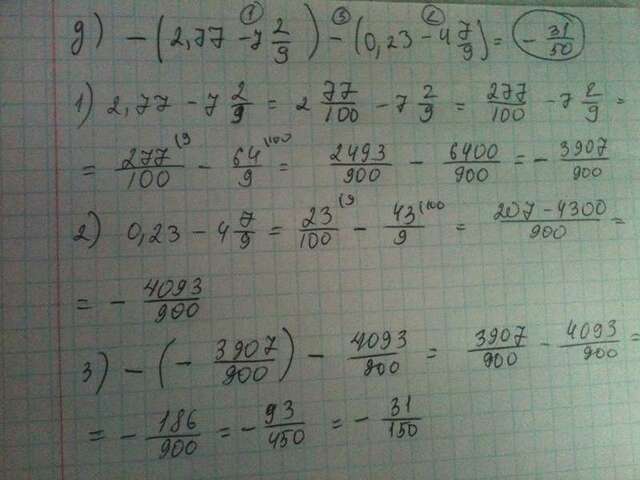 д) - (2,77 - 7 2/9) - (0,23 - 4 7/9) = - 31/50
① ③ ②
1) 2,77 - 7 2/9 = 2 77/100 - 7 2/9 = 277/100 - 7 2/9 =
= 277/100 (9 - 64/9 (100 = 2493/900 - 6400/900 = - 3907/900
2) 0,23 - 4 7/9 = 23/100 (9 - 43/9 (100 = 207 - 4300/900 =
= - 4093/900
3) - (- 3907/900) - 4093/900 = 3907/900 - 4093/900 =
= - 186/900 = - 93/450 = - 31/150